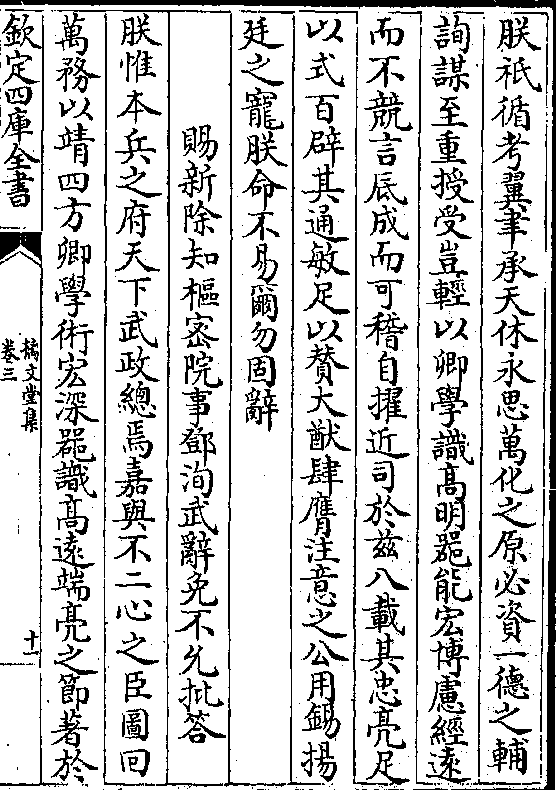 朕祇循考翼聿承天休永思萬化之原必資一德之輔
詢謀至重授受豈輕以卿學識髙明器能宏博慮經遠
而不競言底成而可稽自擢近司於兹八載其忠亮足
以式百辟其通敏足以賛大猷肆膺注意之公用錫揚
廷之寵朕命不易爾勿固辭
賜新除知樞密院事鄧洵武辭免不允批答
朕惟本兵之府天下武政總焉嘉與不二心之臣圖回
萬務以靖四方卿學術宏深器識髙遠端亮之節著於
欽定四庫全書
摛文堂集
卷三
十一